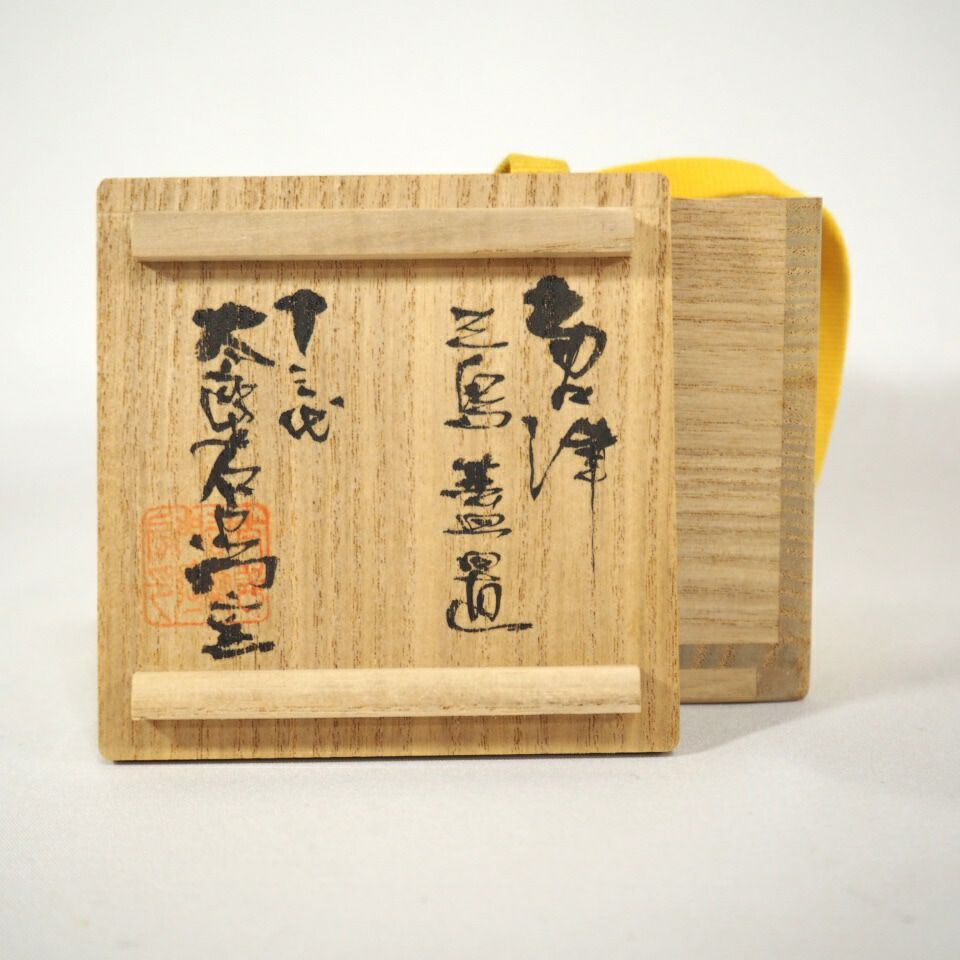 唐津
三島蓋置
十三代
太郎右衛門